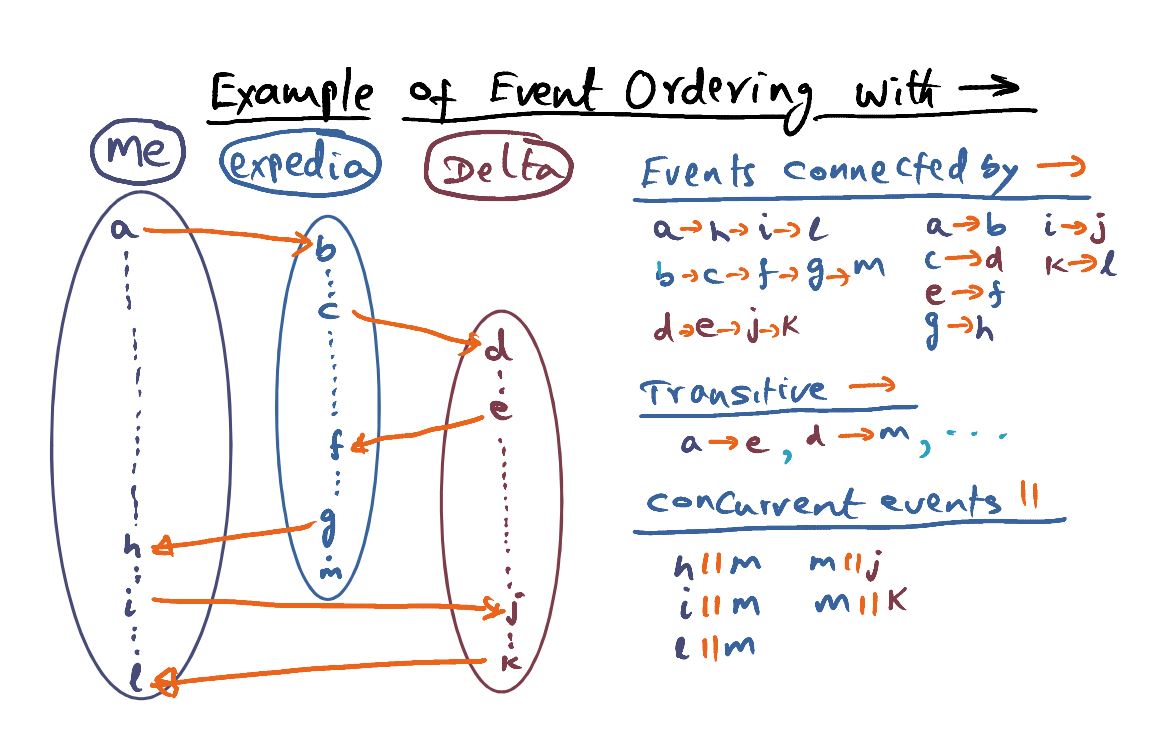 Example of Event Ordering with →
me
expedia
Delta
a
b
c
d
e
f
g
h
m
i
j
k
l
Events connected by →
a→h→i→l
a→b
i→j
b→c→f→g→m
c→d
k→l
e→f
d→e→j→k
g→h
Transitive →
a→e, d→m, ....
concurrent events ||
h||m
m||j
i||m
m||k
l||m